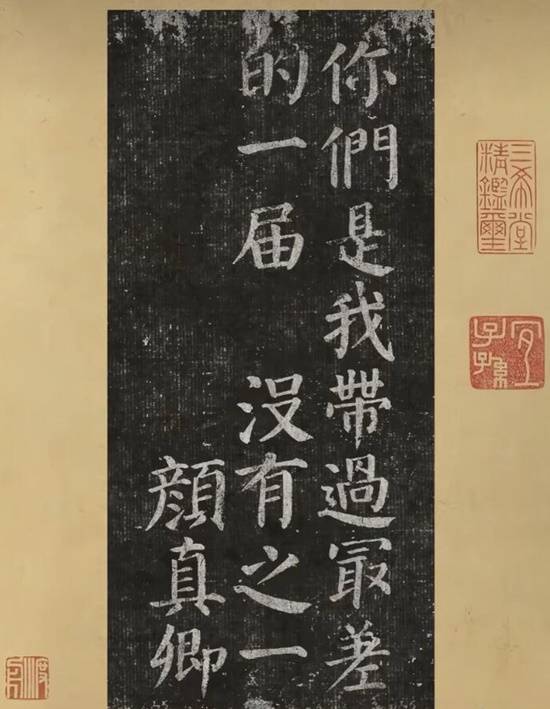 你們是我帶過冣差
的一届 没有之一
顔真卿
三希堂精鑑璽
宜子孫